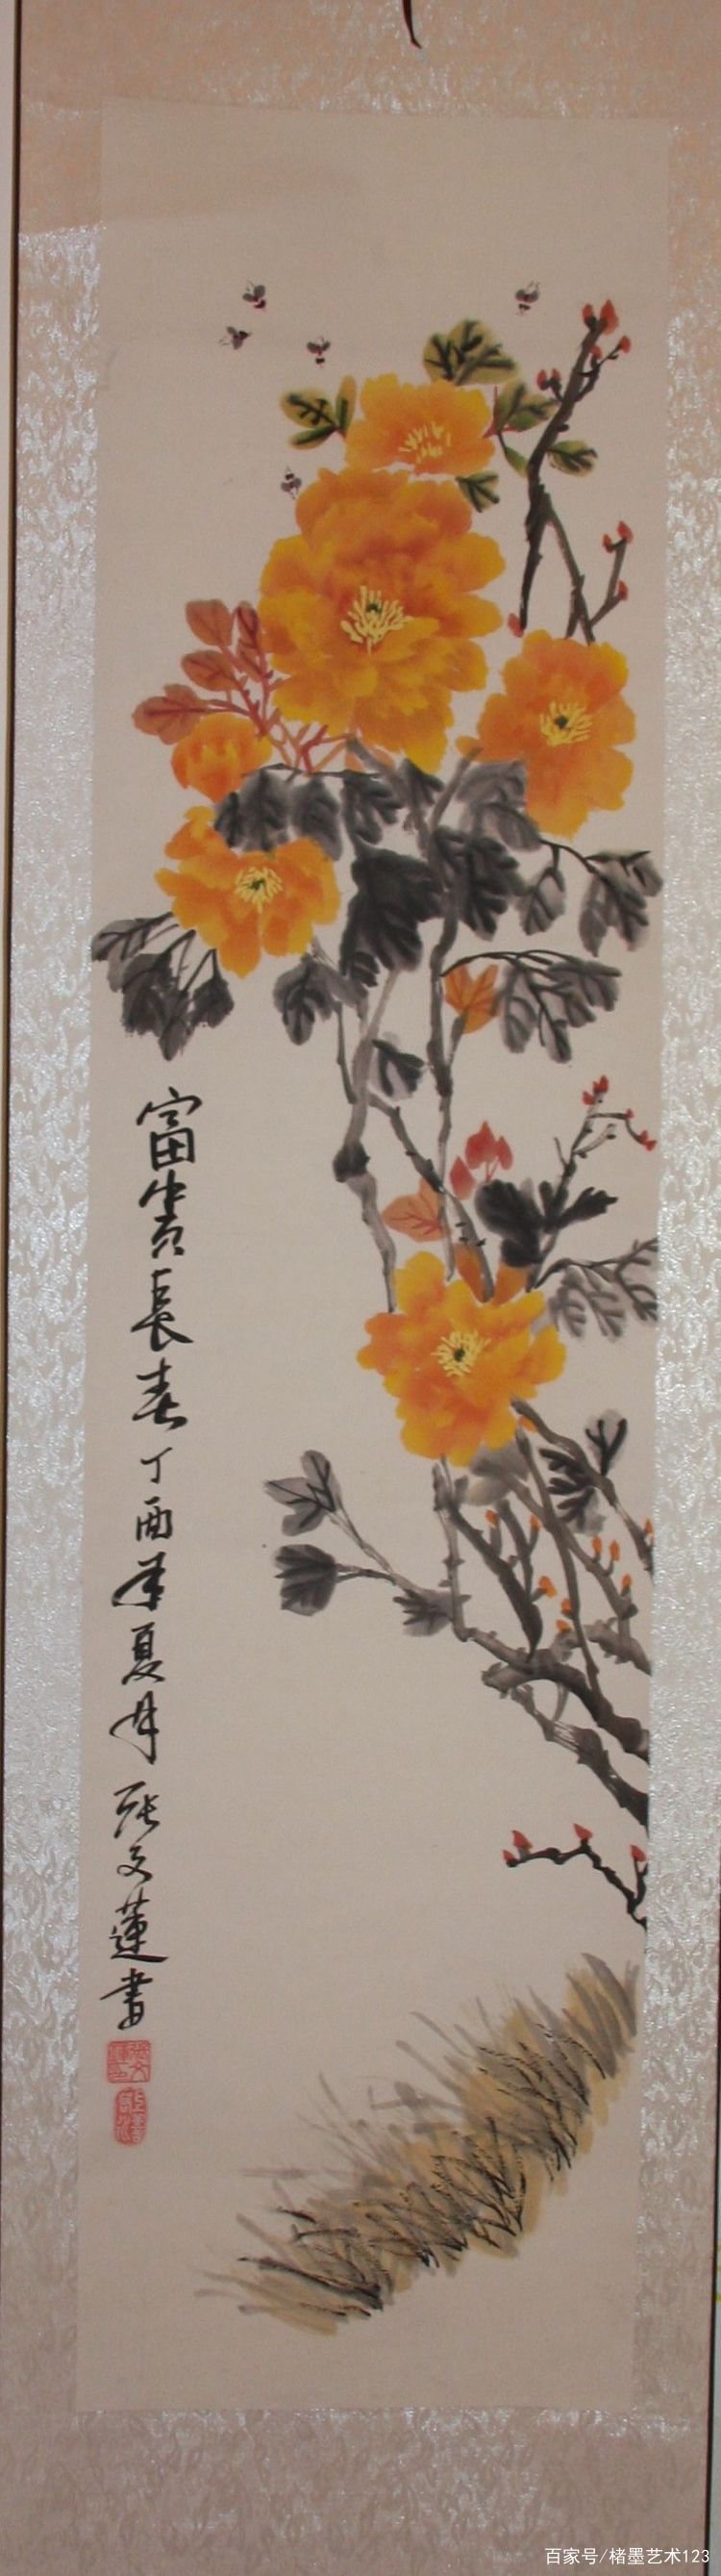 富貴長春丁酉年夏月張文蓮書
百家号/楮墨艺术123